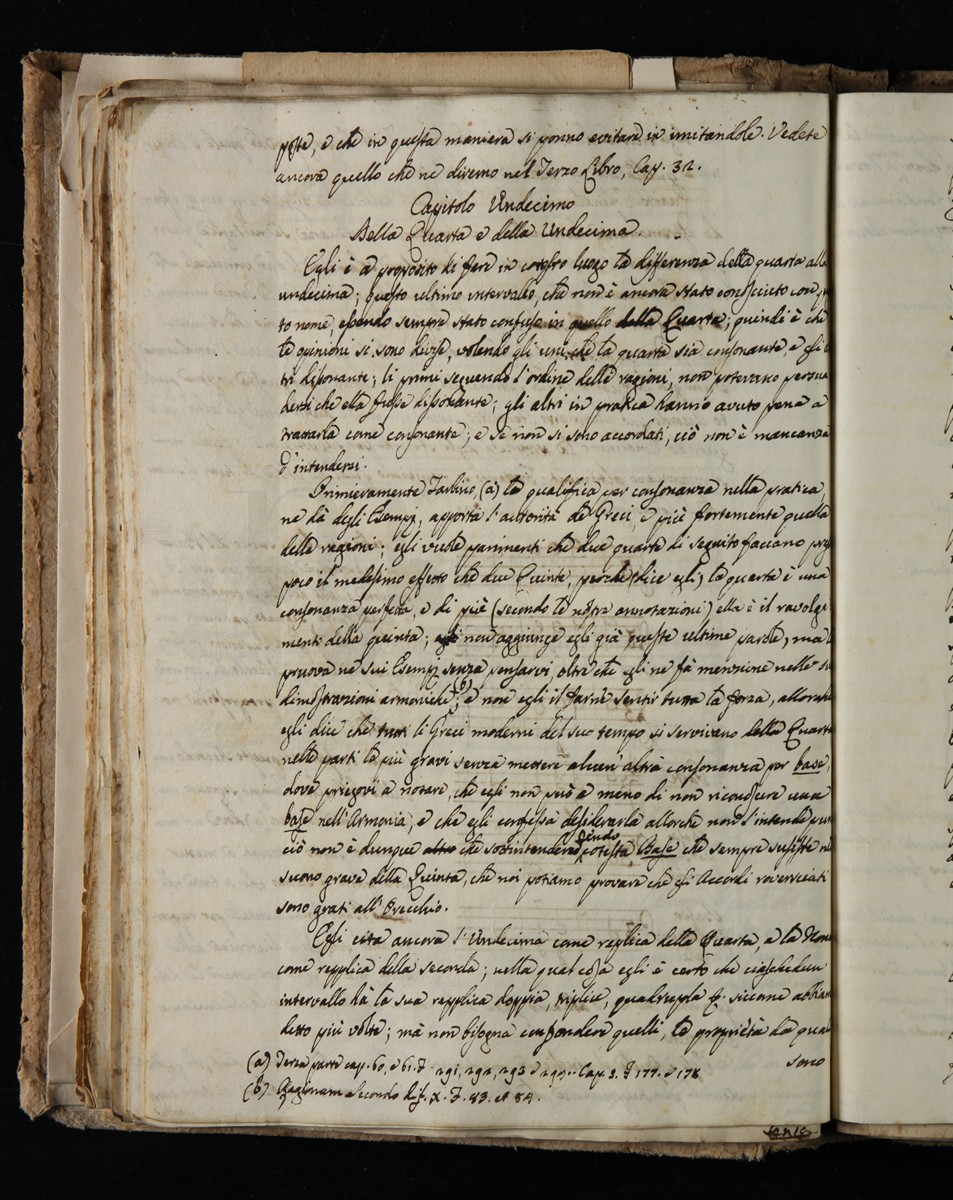 poste, e che in questa maniera si ponno evitare in imitandole. Vedete
ancora quello che ne diremo nel Terzo Libro, Cap. 32.
Capitolo Undecimo
Della Quarta e della Undecima.
Egli è a proposito di fare in cotesto luogo la differenza della quarta alla
undecima; questo ultimo intervallo, che non è ancora stato conosciuto con
to nome, essendo sempre stato confuso in quello della Quarta; quindi è che
le opinioni si sono divise, volendo gli uni che la quarta sia consonante, e gli
tri dissonante; li primi seguendo l'ordine delle ragioni, non potevano persua
dersi che ella fosse dissonante; gli altri in pratica hanno avuto pena a
trattarla come consonante; e se non si sono accordati, ciò non è mancanza
d'intendersi.
Primieramente Zarlino, (a) la qualifica per consonanza nella pratica,
ne dà degli Esempj, apporta l'autorità de Greci e più fortemente quella
delle ragioni; egli vuole parimenti che due quarte di seguito facciano pres
poco il medesimo effetto che due Quinte, perchè (dice egli) la quarta è una
consonanza perfetta, e di più (secondo le nostre annotazioni) ella è il rivolgi
menti della quinta; non aggiunge egli già queste ultime parole, ma
pruova ne sui Esempj senza pensarvi, oltre che egli ne fà menzione nelle
dimostrazioni armoniche (b); e non egli farne sentir tutta la forza, allorchè
egli dice che tutti li Greci moderni del suo tempo si servivano della Quarta
nelle parti le più gravi senza mettere alcun'altra consonanza per base,
dove priegovi a notare, che egli non può a meno di non riconoscere una
base nell'Armonia, e che egli confessa desiderarla allorche non s'intende
ciò non è dunque che sottintendendo cotesta Base che sempre sussiste nel
suono grave della Quinta, che noi potiamo provare che gli Accordi roverscciati
sono grati all'Orecchio.
Egli cita ancora l'Undecima come replica della Quarta, e la Nona
come repplica della seconda; nella qual cosa egli è certo che ciaschedun
intervallo hà la sua repplica doppia, triplice, quadrupla &. siccome abbiam
detto più volte; mà non bisogna confondere quelli, le proprietà da qua
sono
(a) Terza parte cap. 60, e 61. F 291, 292, 293 Cap. 3. F 177. e 178
(b) Ragionam. Secondo F. 83. et 84.